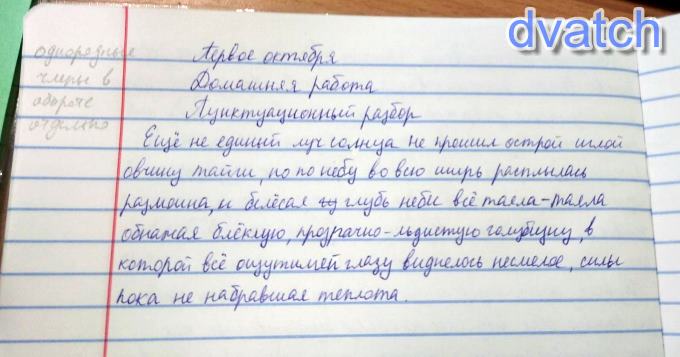 dvatch
однородные
члены в
обороте
отдельно
Первое октября
Домашняя работа
Пунктуационный разбор
Ещё не единый луч солнца не прошил острой иглой
овчину тайги, но по небу во всю ширь расплылась
размоина, и белёсая глубь неби всё таяла-таяла
обнажая блёклую, прозрачно-льдистую голубизну, в
которой всё ощутимей глазу виднелось несмелое, силы
пока не набравшая теплота.